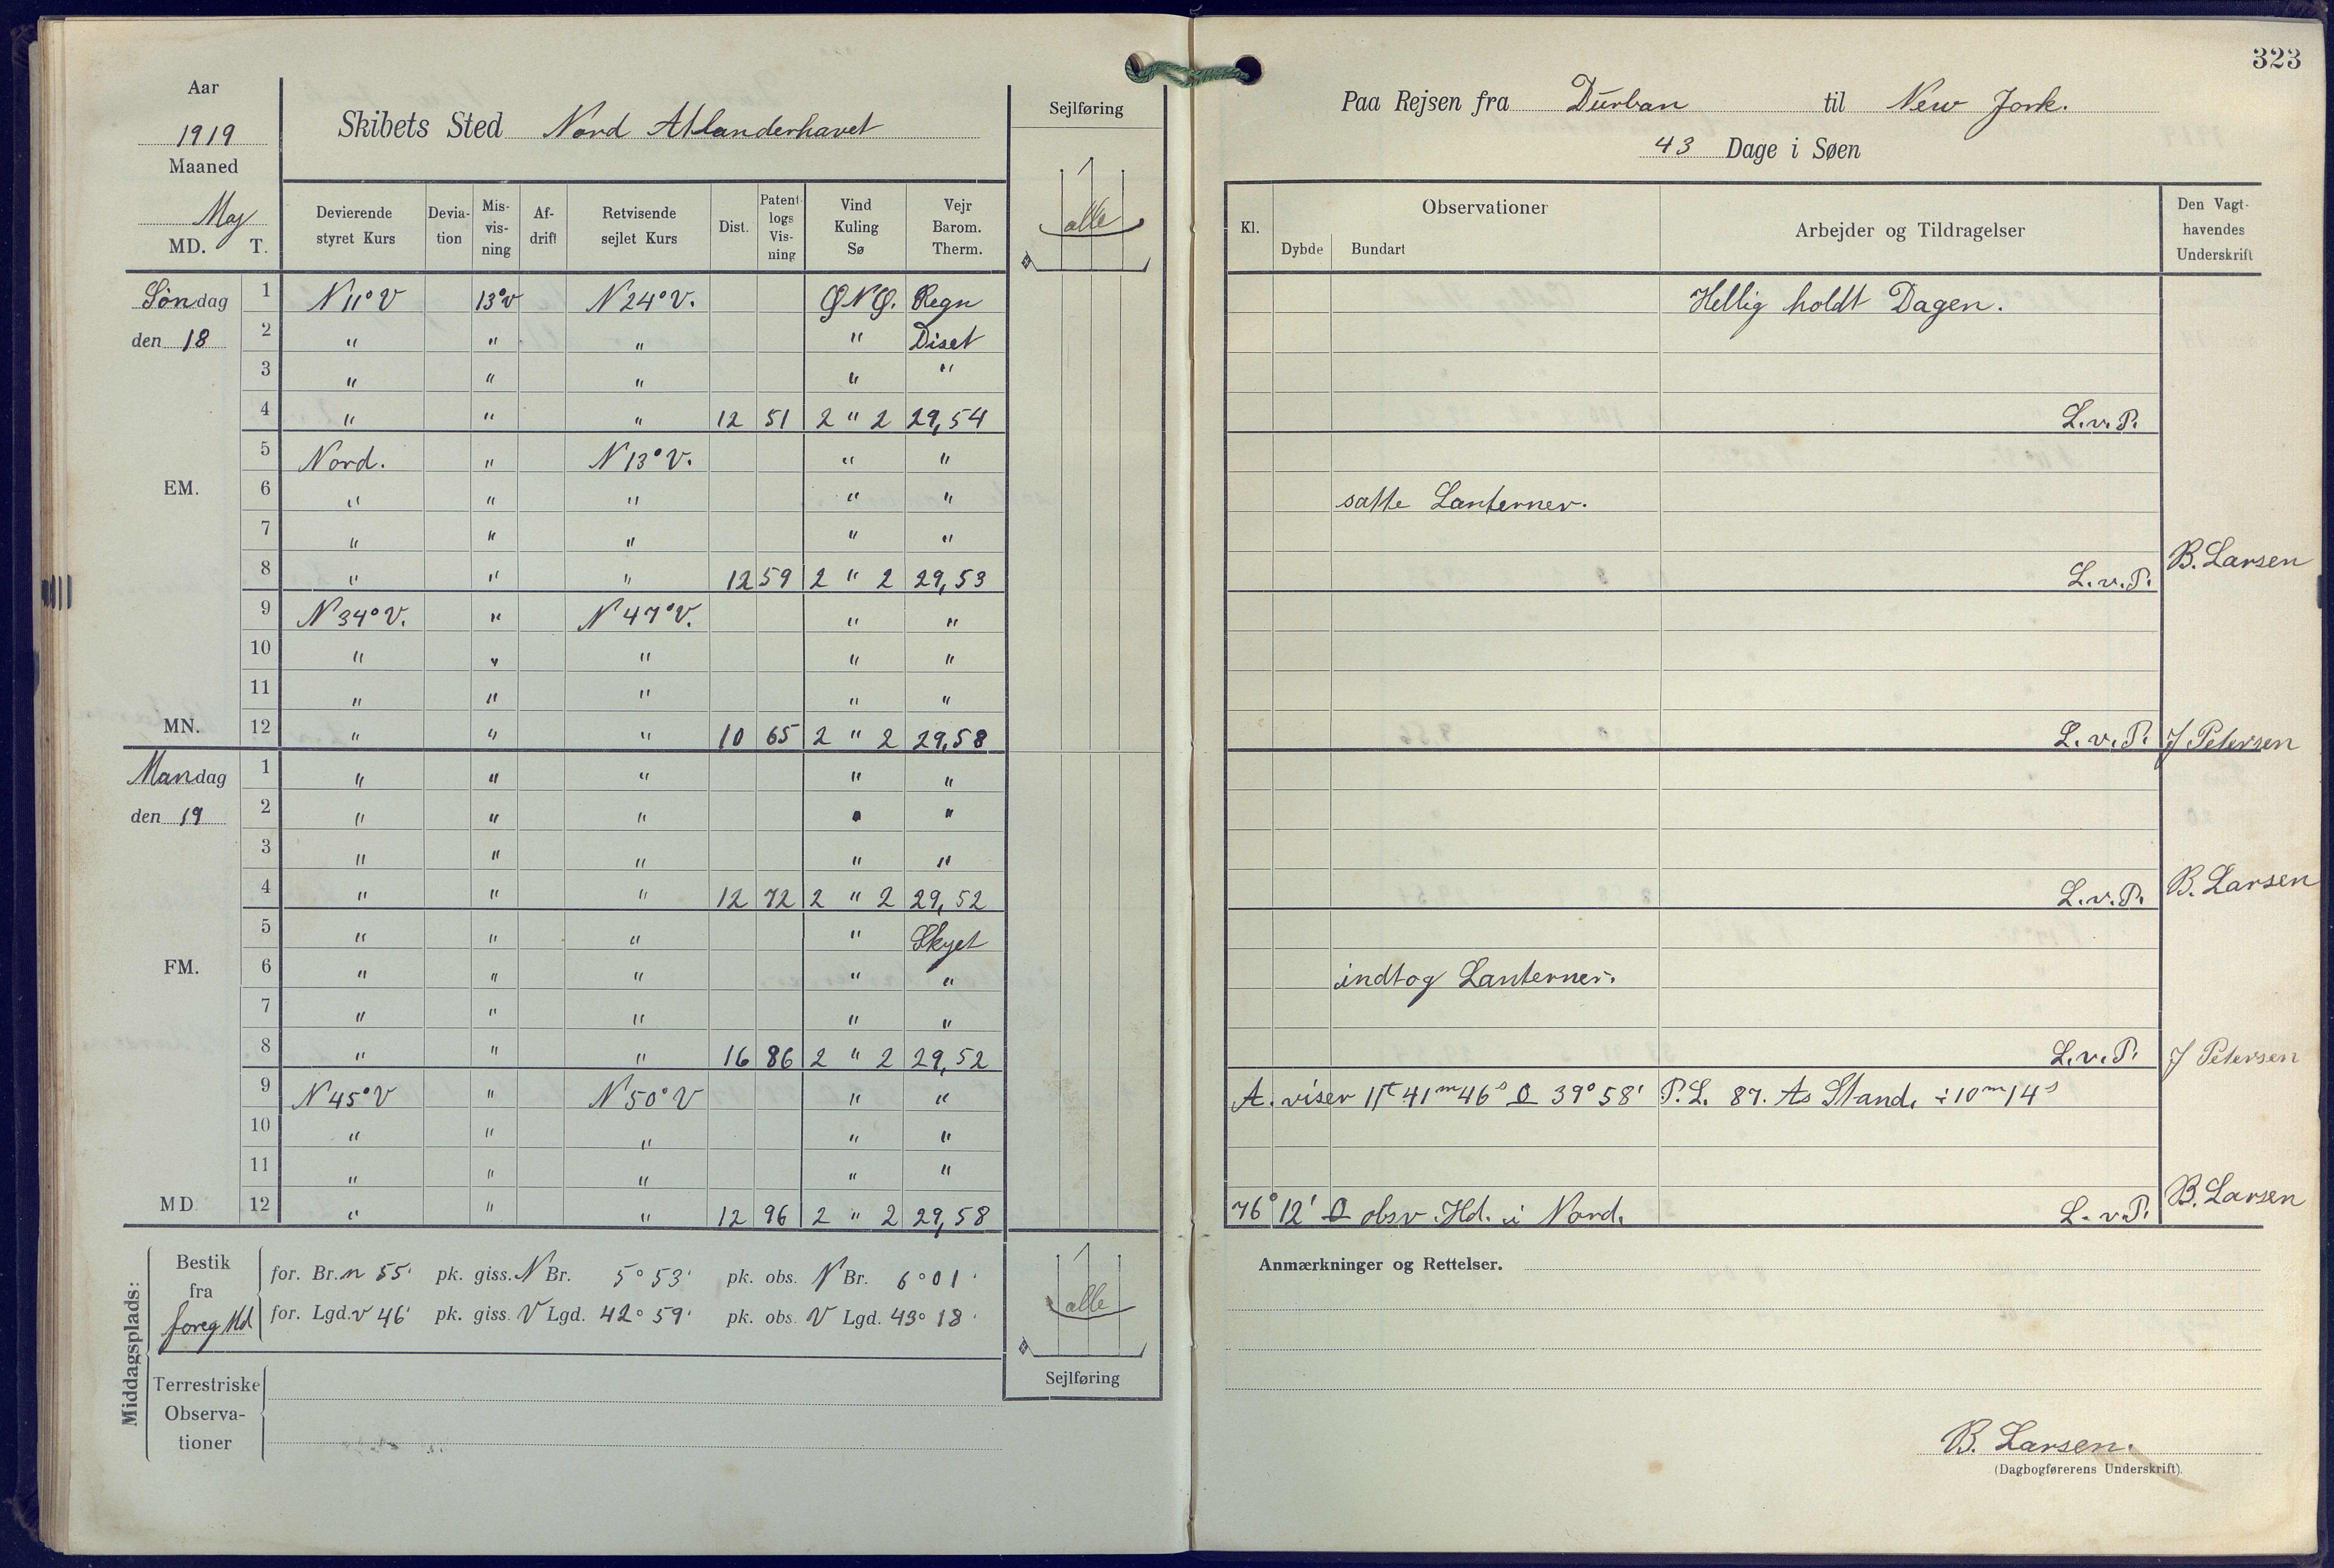 323
Aar
1919
Maaned
Maj
MD. T.
Skibets Sted Nord Atlanderhavet
Sejlføring
alle
Paa Rejsen fra Durban til New Jork.
43 Dage i Søen
Devierende styret Kurs | Devia- tion | Mis- vis- ning | Af- drift | Retvisende sejlet Kurs | Dist. | Patent- logs Vis- ning | Vind Kuling Sø | Vejr Barom. Therm.
Kl. | Observationer | Dybde | Bundart | Arbejder og Tildragelser | Den Vagt- havendes Underskrift
Søndag 1 N 11° V 13° v N 24° V. ØNØ. Regn Hellig holdt Dagen.
den 18 2 " " " " Diset
3 " " " " "
4 " " " 12 51 2 " 2 29,54 L.v.P.
5 Nord. " N 13° V. " "
EM. 6 " " " " " satte Lanterner.
7 " " " " "
8 " " " 12 59 2 " 2 29,53 L.v.P. B. Larsen
9 N 34° V. " N 47° V. " "
10 " " " " "
11 " " " " "
MN. 12 " " " 10 65 2 " 2 29,58 L.v.P. J Petersen
Mandag 1 " " " " "
den 19 2 " " " " "
3 " " " " "
4 " " " 12 72 2 " 2 29,52 L.v.P. B. Larsen
5 " " " " Skyet
FM. 6 " " " " " indtog Lanterner.
7 " " " " "
8 " " " 16 86 2 " 2 29,52 L.v.P. J Petersen
9 N 45° V " N 50° V " " A. viser 11t 41m 46s O 39° 58' P.L. 87. As Stand. ÷ 10m 14s
10 " " " " "
11 " " " " "
MD 12 " " " 12 96 2 " 2 29,58 76° 12' O obsv. Hd. i Nord. L.v.P. B. Larsen
Middagsplads:
Bestik fra foreg Md
for. Br. n 55' pk. giss. N Br. 5° 53' pk. obs. N Br. 6° 01'
for. Lgd. v 46' pk. giss. V Lgd. 42° 59' pk. obs. V Lgd. 43° 18'
Terrestriske
Observa-
tioner
alle
Sejlføring
Anmærkninger og Rettelser.
B. Larsen.
(Dagbogførerens Underskrift).